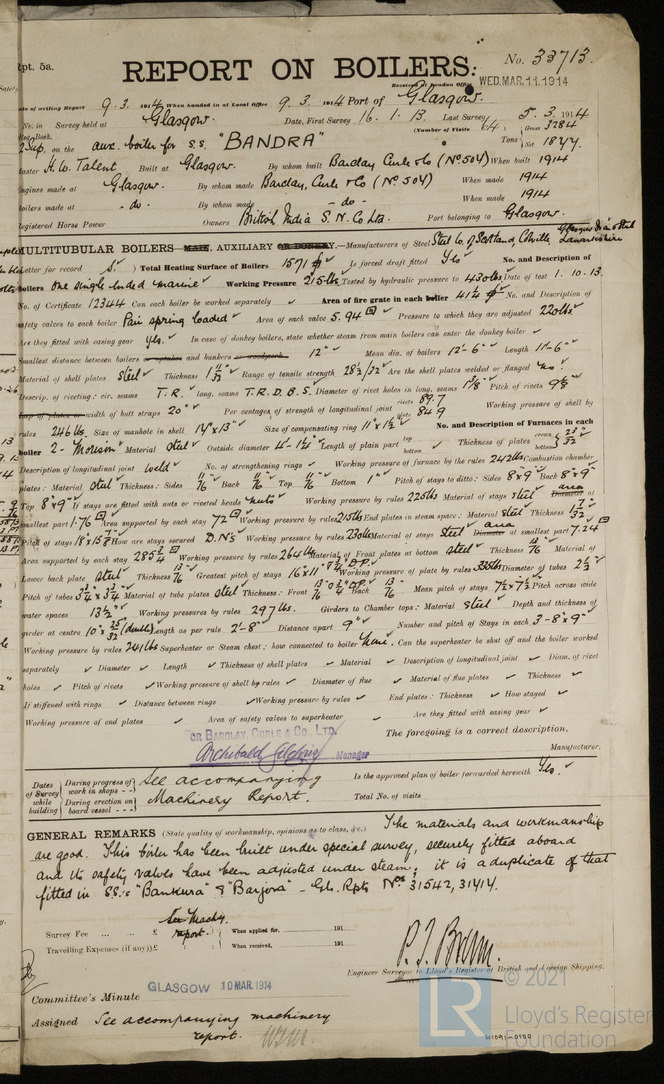 Rpt. 5a.
No. 33713.
REPORT ON BOILERS.
Received at London Office WED. MAR. 11. 1914
Date of writing Report 9. 3. 1914 When handed in at Local Office 9. 3. 1914 Port of Glasgow.
No. in Survey held at Glasgow. Date, First Survey 16. 1. 13. Last Survey 5. 3. 1914
Reg. Book.
(Number of Visits 64)
2 Sup. on the aux. boiler for s.s. "BANDRA" Tons Gross 3284 Net 1847.
Master H. W. Talent Built at Glasgow. By whom built Barclay Curle & Co (No 504) When built 1914
Engines made at Glasgow. By whom made Barclay, Curle & Co (No 504) When made 1914
Boilers made at - do - By whom made - do - When made 1914
Registered Horse Power Owners British India S. N. Co Ltd. Port belonging to Glasgow.
MULTITUBULAR BOILERS MAIN, AUXILIARY OR DONKEY.—Manufacturers of Steel Steel Co. of Scotland, Colville, Glasgow Iron & Steel Lanarkshire
Letter for record S. ) Total Heating Surface of Boilers 1571 Is forced draft fitted Yes No. and Description of
Boilers One single ended marine Working Pressure 215 lbs Tested by hydraulic pressure to 430 lbs Date of test 1. 10. 13.
No. of Certificate 12344 Can each boiler be worked separately ✓ Area of fire grate in each boiler 41¼ No. and Description of
safety valves to each boiler Pair spring loaded Area of each valve 5.94 Pressure to which they are adjusted 220 lbs.
Are they fitted with easing gear Yes. In case of donkey boilers, state whether steam from main boilers can enter the donkey boiler ✓
Smallest distance between boilers or uptakes and bunkers or woodwork 12" Mean dia. of boilers 12'-6" Length 11'-6"
Material of shell plates Steel Thickness 1 11/32 Range of tensile strength 28½/32 Are the shell plates welded or flanged No.
Descrip. of riveting: cir. seams T.R. long. seams T.R.D.B.S. Diameter of rivet holes in long. seams 1⅜ Pitch of rivets 9⅝
Lap of plates or width of butt straps 20" Per centages of strength of longitudinal joint rivets 89.7 plate 84.9 Working pressure of shell by
rules 246 lbs. Size of manhole in shell 17"x13" Size of compensating ring 11"x1½ No. and Description of Furnaces in each
boiler 2 - Morison Material Steel Outside diameter 4'-1¼ Length of plain part top bottom ✓ Thickness of plates crown bottom 21/32
Description of longitudinal joint Weld No. of strengthening rings ✓ Working pressure of furnace by the rules 242 lbs Combustion chamber
plates: Material Steel Thickness: Sides 11/16 Back 11/16 Top 11/16 Bottom 1" Pitch of stays to ditto: Sides 8"x9" Back 8"x9"
Top 8"x9" If stays are fitted with nuts or riveted heads Nuts Working pressure by rules 225 lbs Material of stays Steel Diameter area at
smallest part 1.76 Area supported by each stay 72 Working pressure by rules 215 lbs End plates in steam space: Material Steel Thickness 1 7/32
Pitch of stays 18"x15½" How are stays secured D.N's Working pressure by rules 230 lbs Material of stays Steel Diameter area at smallest part 7.24
Area supported by each stay 285¼ Working pressure by rules 264 lbs Material of Front plates at bottom Steel Thickness 13/16 Material of
Lower back plate Steel Thickness 13/16 Greatest pitch of stays 16"x11" Working pressure of plate by rules 335 lbs Diameter of tubes 2½
Pitch of tubes 3¾"x3¾ Material of tube plates Steel Thickness: Front 13/16 Back 13/16 Mean pitch of stays 7½"x7½ Pitch across wide
water spaces 13½" Working pressures by rules 297 lbs. Girders to Chamber tops: Material Steel Depth and thickness of
girder at centre 10"x 25/32 (double) Length as per rule 2'-8" Distance apart 9" Number and pitch of Stays in each 3-8"x9"
Working pressure by rules 241 lbs Superheater or Steam chest; how connected to boiler None. Can the superheater be shut off and the boiler worked
separately ✓ Diameter ✓ Length ✓ Thickness of shell plates ✓ Material ✓ Description of longitudinal joint ✓ Diam. of rivet
holes ✓ Pitch of rivets ✓ Working pressure of shell by rules ✓ Diameter of flue ✓ Material of flue plates ✓ Thickness ✓
If stiffened with rings ✓ Distance between rings ✓ Working pressure by rules ✓ End plates: Thickness ✓ How stayed ✓
Working pressure of end plates ✓ Area of safety valves to superheater ✓ Are they fitted with easing gear ✓
FOR BARCLAY, CURLE & CO. LTD. The foregoing is a correct description,
Archibald Gilchrist Manager Manufacturer.
Dates of Survey while building
During progress of work in shops - - See accompanying Is the approved plan of boiler forwarded herewith Yes.
During erection on board vessel - - - Machinery Report. Total No. of visits
GENERAL REMARKS (State quality of workmanship, opinions as to class, &c.) The materials and workmanship
are good. This boiler has been built under special survey, securely fitted aboard
and its safety valves have been adjusted under steam; it is a duplicate of that
fitted in SS.'s "Bankura" & "Barjora" - Gls. Rpts Nos 31542, 31414.
Survey Fee ... ... £ See Machy. report. When applied for, 191
Travelling Expenses (if any) £ When received, 191
Engineer Surveyor to Lloyd's Register of British and Foreign Shipping.
Committee's Minute GLASGOW 10 MAR. 1914
Assigned See accompanying machinery
report.
© 2021
LR
Lloyd's Register
Foundation
W1091-0100